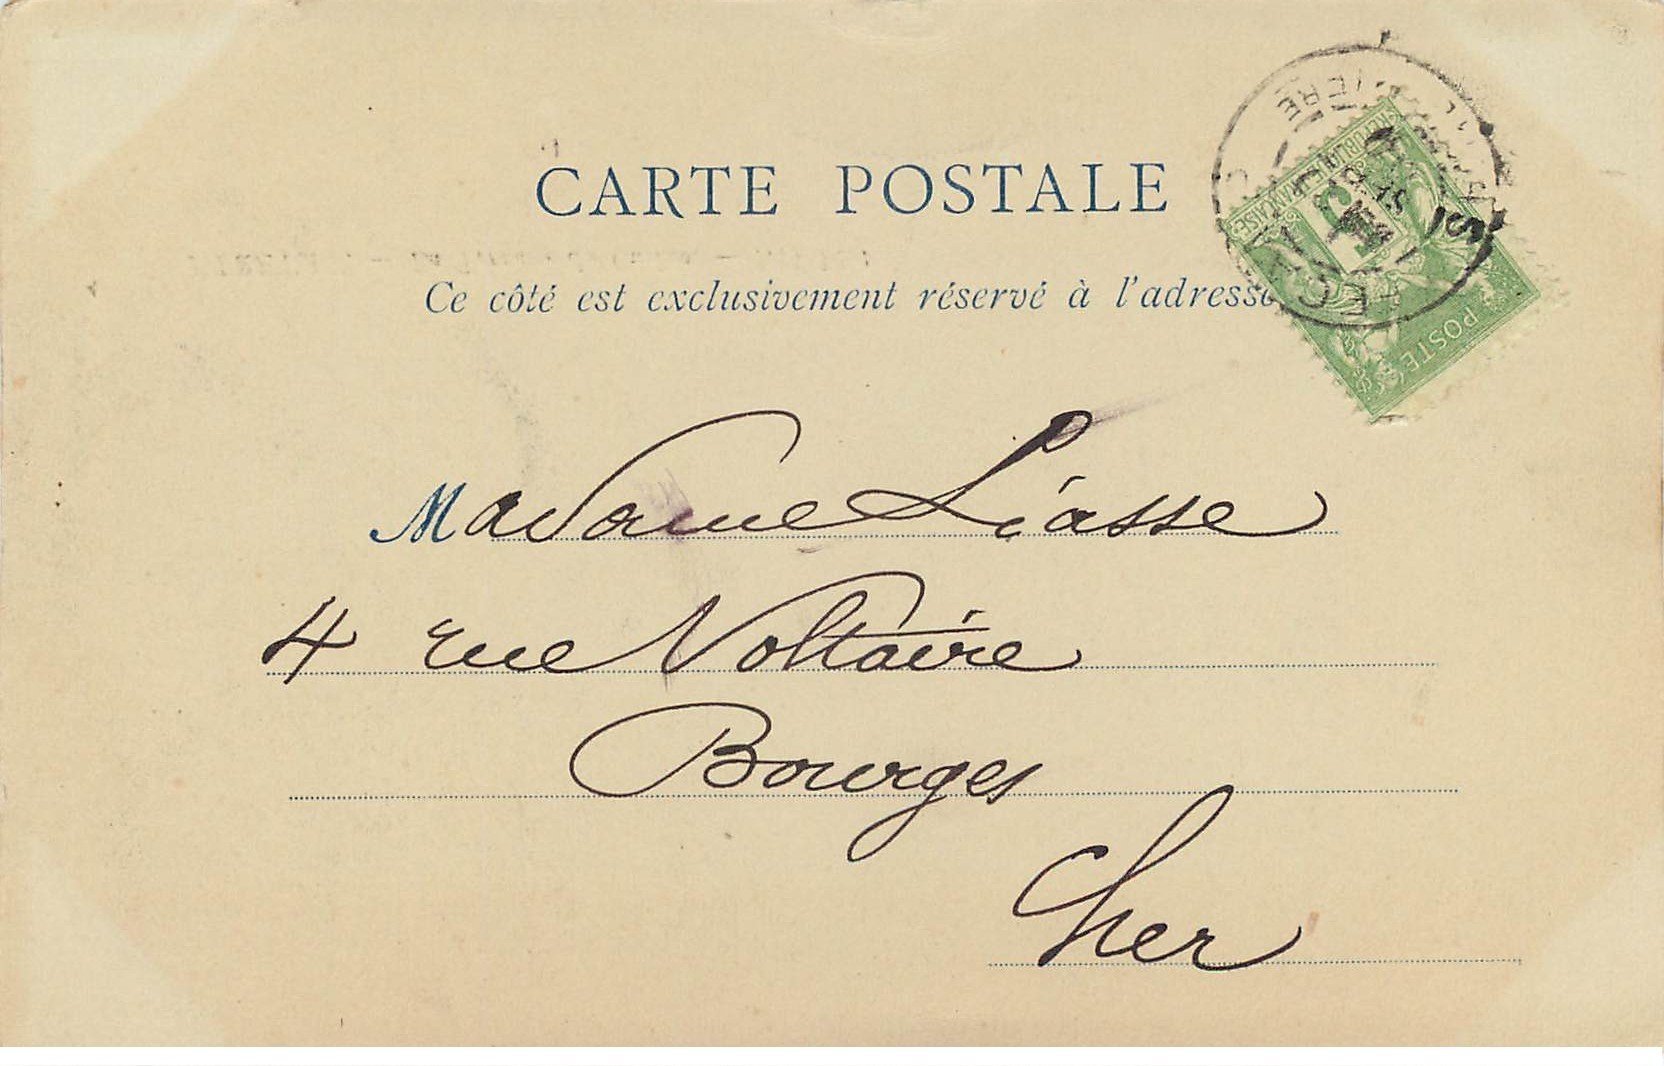 CARTE POSTALE
Ce côté est exclusivement réservé à l'adresse
REPUBLIQUE FRANÇAISE
5
POSTE
Madame Liasse
4 rue Voltaire
Bourges
Cher